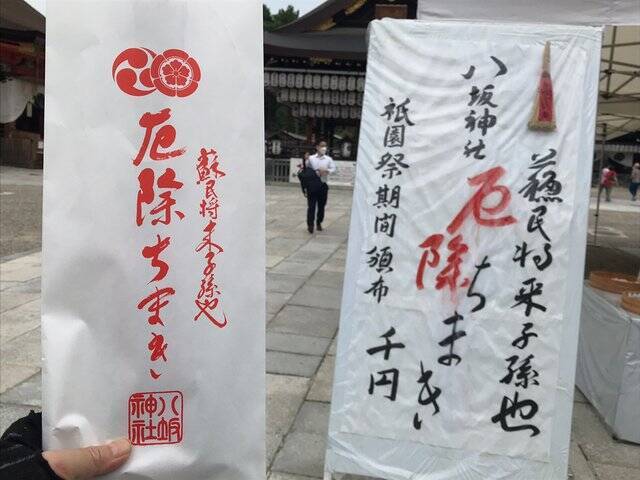 厄除ちまき
蘇民将来子孫也
八坂
神社
蘇民将来子孫也
八坂神社
厄除ちまき
祇園祭期間頒布
千円